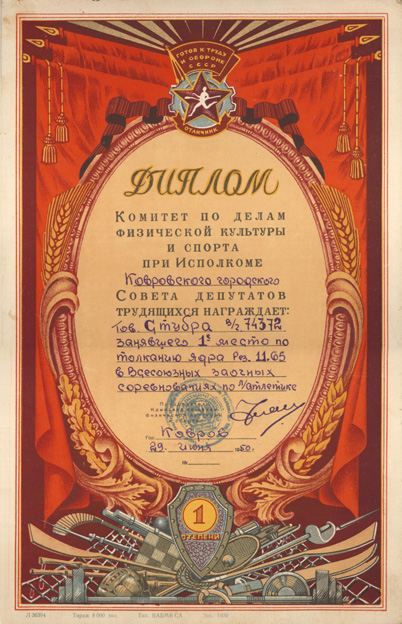 ГОТОВ К ТРУДУ
И ОБОРОНЕ
СССР
ОТЛИЧНИК
ДИПЛОМ
КОМИТЕТ ПО ДЕЛАМ
ФИЗИЧЕСКОЙ КУЛЬТУРЫ
И СПОРТА
ПРИ ИСПОЛКОМЕ
Ковровского городского
СОВЕТА ДЕПУТАТОВ
ТРУДЯЩИХСЯ НАГРАЖДАЕТ:
Тов. Стибра в/ч 74372
занявшего 1е место по
толканию ядра рез. 11.65
в Всесоюзных заочных
соревнованиях по л/атлетике
Гор. Ковров
29. июня 1950.
№
1
СТЕПЕНИ
Тираж 8 000 экз.